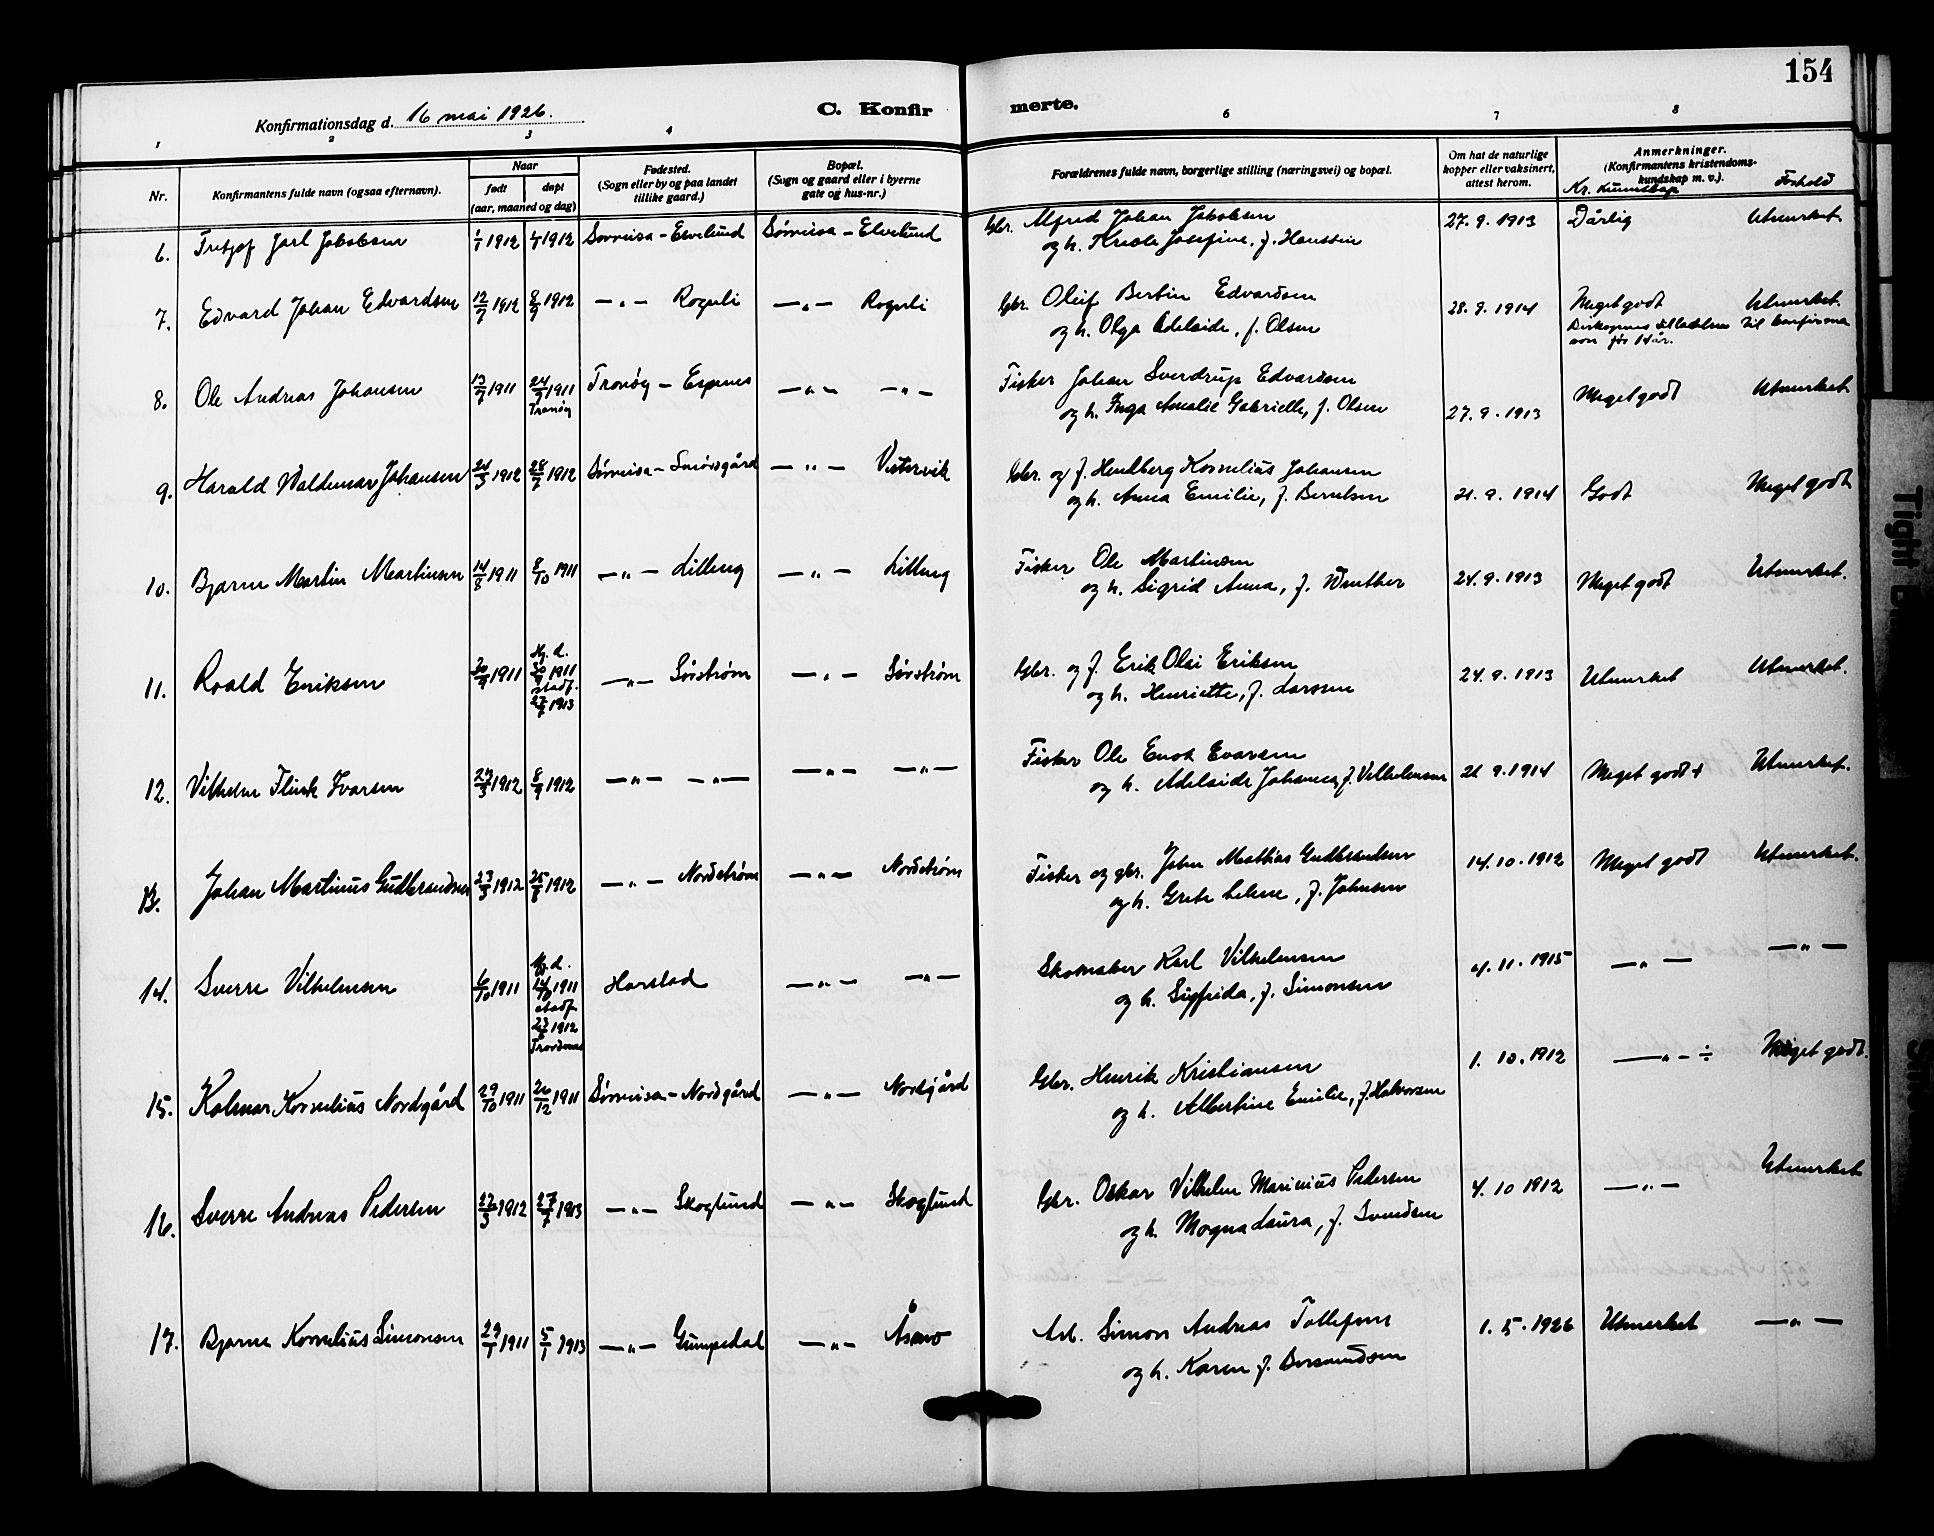 154
Konfirmationsdag d. 16 mai 1926.
C. Konfir merte.
1 2 3 4 6 7 8
Nr.
Konfirmantens fulde navn (ogsaa efternavn).
Naar
født
døpt
(aar, maaned og dag)
Fødested.
(Sogn eller by og paa landet
tillike gaard.)
Bopæl.
(Sogn og gaard eller i byerne
gate og hus-nr.)
Forældrenes fulde navn, borgerlige stilling (næringsvei) og bopæl.
Om hat de naturlige
kopper eller vaksinert,
attest herom.
Anmerkninger.
(Konfirmantens kristendoms-
kundskap m. v.).
Kr. kunnskap Forhold
6. Fritjof Jarl Jakobsen 1912 1912 Sørreisa - Elvelund Sørreisa - Elvelund Gbr. Alfred Johan Jakobsen 27.9.1913 Dårlig Utmerket.
og h. Josefine, f. Hanssen
7. Edvard Johan Edvardsen 12/7 1912 8/9 1912 — " — Rognli — " — Rognli Gbr. Oleif Bertin Edvardsen 28.9.1914 Meget godt Utmerket.
og h. Olga Adelaide, f. Olsen
Biskopens tilladelse til konfirma
son før 14 år.
8. Ole Andreas Johansen 13/7 1911 24/9 1911 Tranøy - Espenes — " — — " — Fisker Johan Sverdrup Edvardsen Meget godt Utmerket
Tranøy
og h. Inga Amalie Gabrielle, f. Olsen 27.9.1913
9. Harald Waldemar Johansen 24/5 1912 28/7 1912 Sørreisa - Smørsgård — " — Vestervik Gbr. og f. Hendberg Kornelius Johansen
og h. Anna Emilie, f. Berntsen 21.9.1914 Godt Meget godt
10. Bjarne Martin Martinsen 14/8 1911 8/10 1911 — " — Lilleng — " — Lilleng Fisker Ole Martinsen
og h. Sigrid Anna, f. Winther 24.9.1913 Meget godt Utmerket.
11. Roald Eriksen 20/9 1911 Hj. d.
30/9 1911
stadf.
27/7 1913
— " — Sørstrøm — " — Sørstrøm Gbr. og f. Erik Olai Eriksen
og h. Henriette, f. Larssen 24.9.1913 Utmerket Utmerket.
12. Vilhelm Flink Ivarsen 27/5 1912 8/9 1912 — " — — " — — " — — " — Fisker Ole Enok Evarsen
og h. Adelaide Johanna, f. Vilhelmsen 21.9.1914 Meget godt + Utmerket.
13. Johan Martinus Gudbrandsen 23/5 1912 25/8 1912 — " — Nordstrøm — " — Nordstrøm Fisker og gbr. Johan Mathias Gudbrandsen
og h. Grete Helene, f. Johnsen 14.10.1912 Meget godt Utmerket.
14. Sverre Vilhelmsen 6/10 1911 Hj. d.
14/10 1911
stadf.
23/6 1912
Trondenes
Harstad — " — — " — Skomaker Karl Vilhelmsen
og h. Sigfrida, f. Simonsen 4.11.1915 — " — — " —
15. Kolmar Kornelius Nordgård 29/10 1911 26/12 1911 Sørreisa - Nordgård — " — Nordgård Gbr. Henrik Kristiansen
og h. Albertine Emilie, f. Halvorsen 1.10.1912 — " — ÷ Meget godt.
16. Sverre Andreas Pedersen 22/3 1912 27/7 1913 — " — Skoglund — " — Skoglund Gbr. Oskar Vilhelm Marinius Pedersen
og h. Magna Laura, f. Svendsen 4.10 1912 — " — Utmerket
17. Bjarne Kornelius Simonsen 29/1 1911 5/1 1913 — " — Gumpedal — " — Åsmo Arb. Simon Andreas Tollefsen
og h. Karen f. 1.5.1926 Utmerket — " —